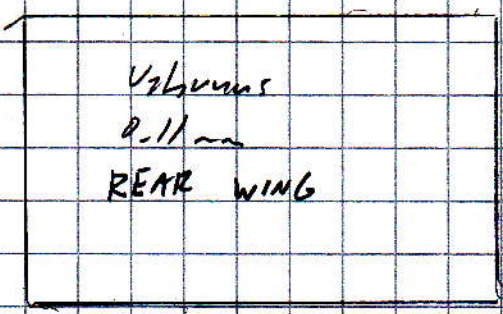 0.11 mm
REAR WING